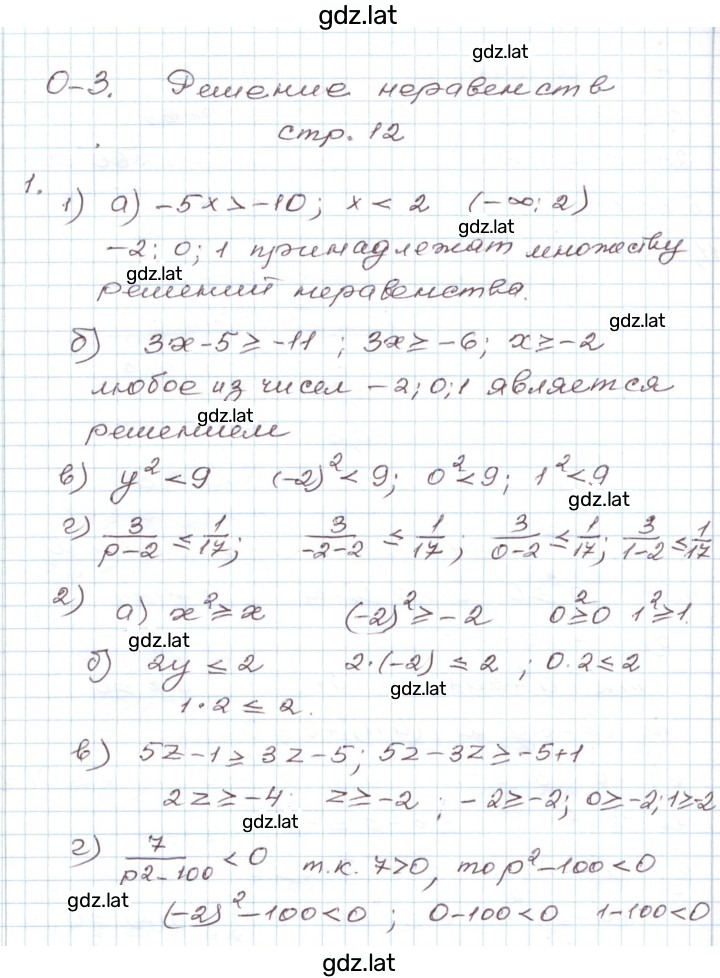 gdz.lat
gdz.lat
О-3. Решение неравенств
стр. 12
1. 1) а) -5x > -10; x < 2 (-∞; 2)
gdz.lat
-2; 0; 1 принадлежат множеству
gdz.lat
решений неравенства.
gdz.lat
б) 3x - 5 ≥ -11 ; 3x ≥ -6; x ≥ -2
любое из чисел -2; 0; 1 является
gdz.lat
решением
в) y² < 9 (-2)² < 9; 0² < 9; 1² < 9
gdz.lat
г) 3/(p-2) ≤ 1/17; 3/(-2-2) ≤ 1/17; 3/(0-2) ≤ 1/17; 3/(1-2) ≤ 1/17
2) а) x² ≥ x (-2)² ≥ -2 0² ≥ 0 1² ≥ 1.
gdz.lat
б) 2y ≤ 2 2·(-2) ≤ 2 ; 0·2 ≤ 2
gdz.lat
1·2 ≤ 2.
в) 5z - 1 ≥ 3z - 5; 5z - 3z ≥ -5+1
2z ≥ -4 z ≥ -2 ; -2 ≥ -2; 0 ≥ -2; 1 ≥ -2
gdz.lat
г) 7/(p2-100) < 0 т.к. 7>0, то p²-100<0
gdz.lat
(-2)²-100<0 ; 0-100<0 1-100<0
gdz.lat